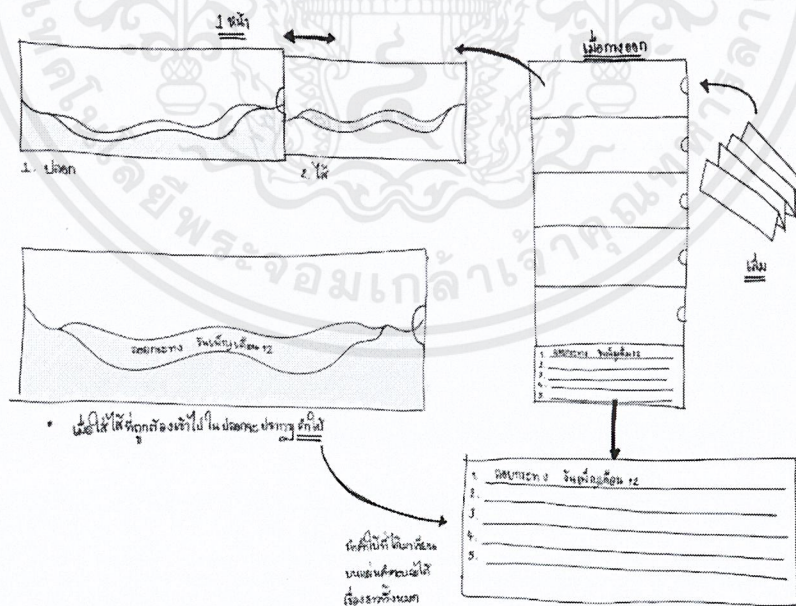 1 หน้า
เมื่อกางออก
1. ปลอก
2. ไส้
เล่ม
ลอยกระทง วันเพ็ญเดือน 12
1. ลอยกระทง วันเพ็ญเดือน 12
2.
3.
4.
5.
• เมื่อใส่ไส้ที่ถูกต้องเข้าไปในปลอกจะปรากฏคำใบ้
1. ลอยกระทง วันเพ็ญเดือน 12
2.
3.
4.
5.
นำคำใบ้ที่ได้มาเขียน
บนแผ่นคำตอบจะได้
เรื่องราวทั้งหมด
พระจอมเกล้าเจ้าคุณทหารลา